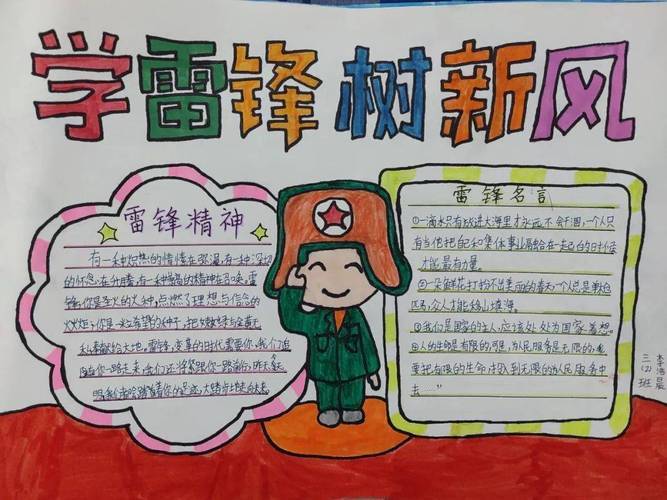 学雷锋树新风
雷锋精神
有一种炽热的情愫在弥漫,有一种深切
的怀念,在升腾,有一种崇高的精神在召唤,雷
锋,你是圣火的火种,点燃了理想与信念的
火炬,你是一粒希望的种子,把
奉献给大地,雷锋,变革的时代需要你,我们追
随你一路走来,我们还将紧跟你一路前行,
你的足迹,大踏步
雷锋名言
①一滴水只有放进大海里才永远不会干涸,一个人只
有当他把自己和集体事业融合在一起的时候
才能最有力量。
②一朵鲜花打扮不出美丽的春天,一个人总是单枪
匹马,众人才能移山填海。
③我们是国家的主人,应该处处为国家着想。
④人的生命是有限的,可是,为人民服务是无限的,我
要把有限的生命,投入到无限的为人民服务中
去
三(2)班
李浩晨